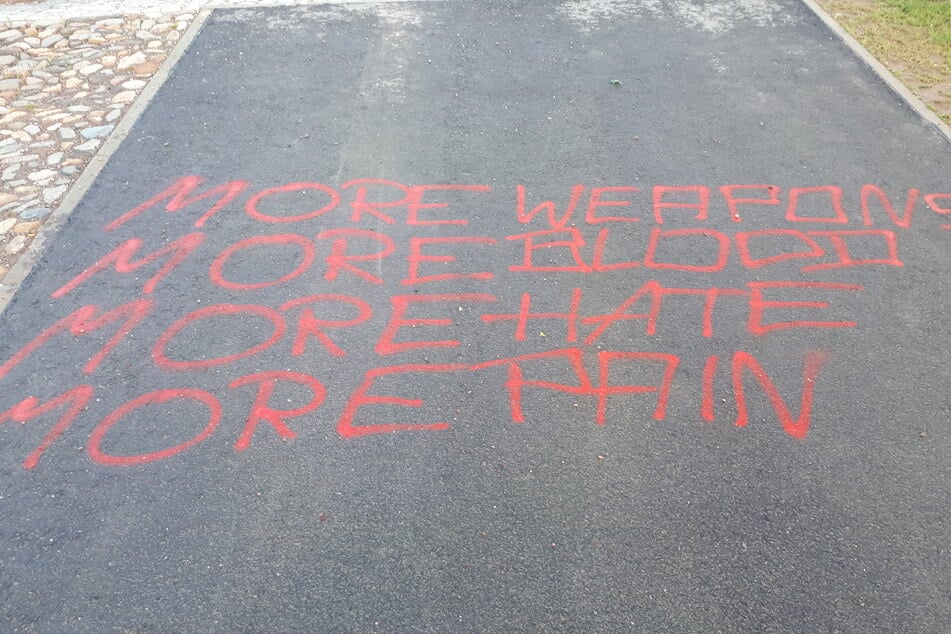 MORE WEAPONS
MORE BLOOD
MORE HATE
MORE PAIN